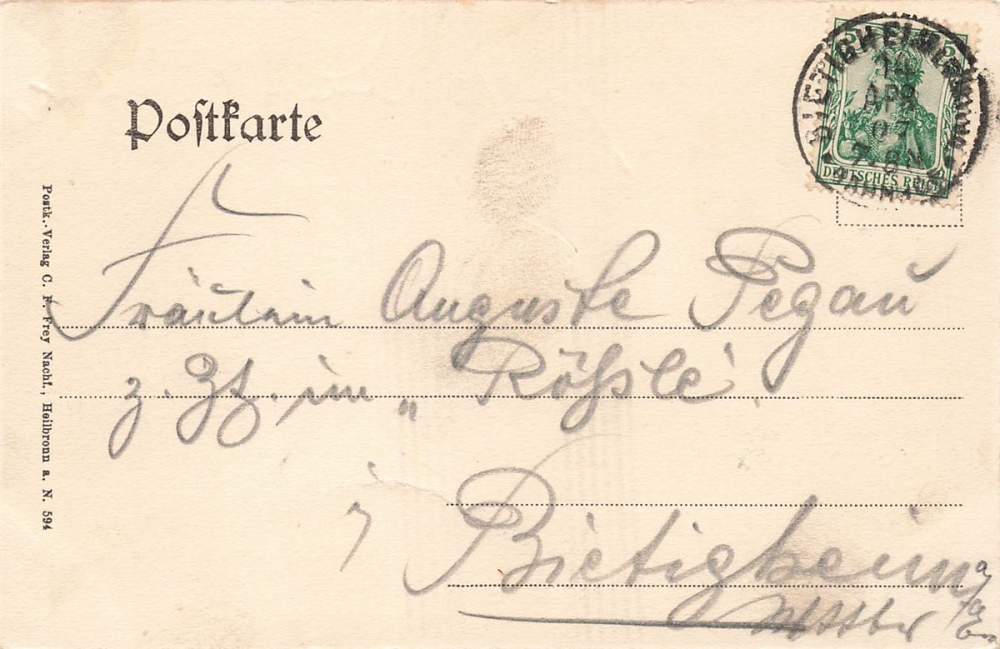 Postkarte
BIETIGHEIM
14
APR
07
7-8N
DEUTSCHES REICH
Postk.-Verlag C. F. Frey Nachf., Heilbronn a. N. 594
Fräulein Auguste Pegau
z. Zt. im „Rößle'
Bietigheim